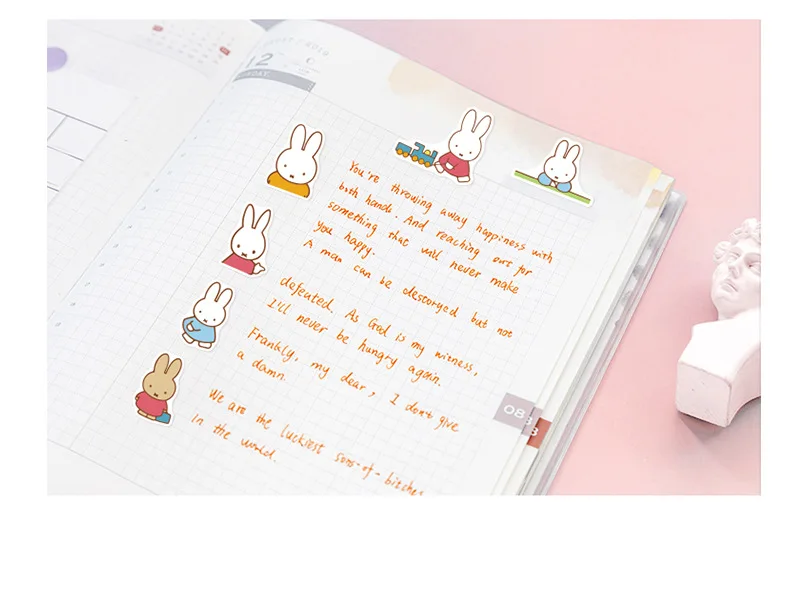 12
You're throwing away happiness with
both hands. And reaching out for
something that will never make
you happy.
A man can be destoryed but not
defeated. As God is my witness,
I'll never be hungry again.
Frankly, my dear, I don't give
a damn.
We are the luckiest sons-of-bitches
in the world.
08